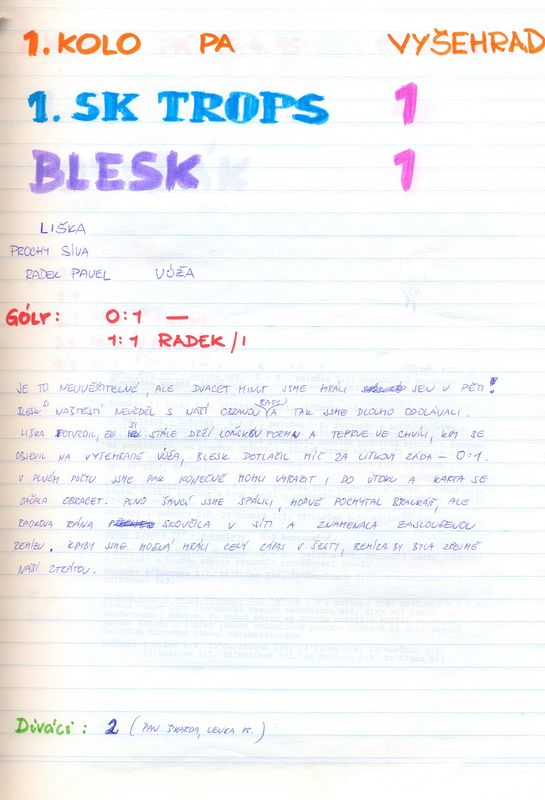 1. KOLO PA VYŠEHRAD
1. SK TROPS 1
BLESK 1
LIŠKA
PROCHY SÍVA
RADEK PAVEL VÓŽA
GÓLY: 0:1 —
1:1 RADEK /1
JE TO NEUVĚŘITELNÉ, ALE DVACET MINUT JSME HRÁLI JEN V PĚTI!
BLESK SI NAŠTĚSTÍ NEVĚDĚL S NAŠÍ OBRANOU RADY A TAK JSME DLOUHO ODOLÁVALI.
LIŠKA POTVRDIL, ŽE SI STÁLE DRŽÍ LOŇSKOU FORMU A TEPRVE VE CHVÍLI, KDY SE
OBJEVIL NA VYŠEHRADĚ VÓŽA, BLESK DOTLAČIL MÍČ ZA LIŠKOVA ZÁDA – 0:1.
V PLNÉM POČTU JSME PAK KONEČNĚ MOHLI VYRAZIT I DO ÚTOKU A KARTA SE
ZAČALA OBRACET. PLNO ŠANCÍ JSME SPÁLILI, HODNĚ POCHYTAL BRANKÁŘ, ALE
RADKOVA RÁNA SKONČILA V SÍTI A ZNAMENALA ZASLOUŽENOU
REMÍZU. KDYBY JSME MOŽNÁ HRÁLI CELÝ ZÁPAS V ŠESTI, REMÍZA BY BYLA ZŘEJMĚ
NAŠÍ ZTRÁTOU.
Diváci: 2 (PAN ŠKARDA, LENKA PR.)